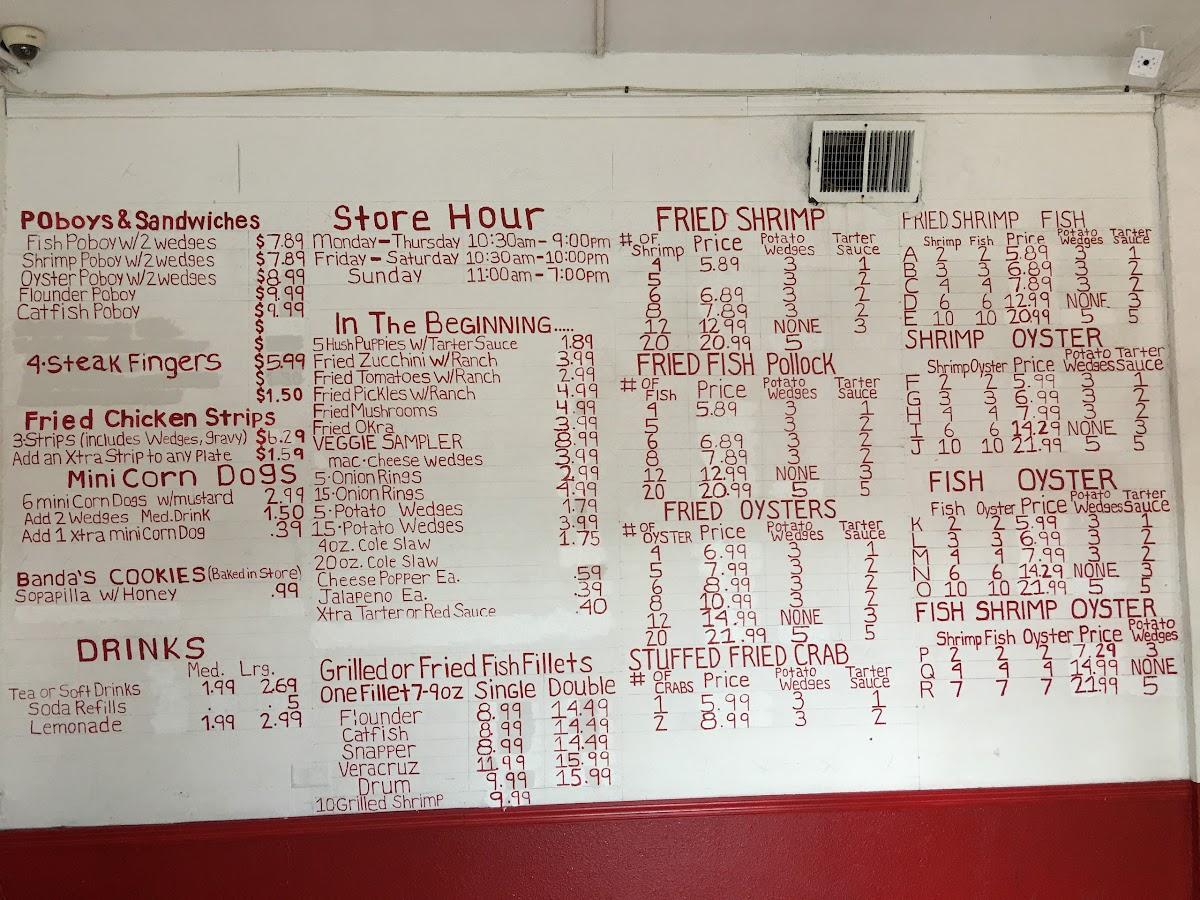 POboys & Sandwiches
Fish Poboy W/2 wedges $7.89
Shrimp Poboy W/2 wedges $7.89
Oyster Poboy W/2 wedges $8.99
Flounder Poboy $9.99
Catfish Poboy $9.99
$
$
4-Steak Fingers $5.99
$
$1.50
Fried Chicken Strips
3-Strips (includes Wedges, gravy) $6.29
Add an Xtra Strip to any Plate $1.59
Mini Corn Dogs
6 mini Corn Dogs w/mustard 2.99
Add 2 Wedges Med. Drink 1.50
Add 1 Xtra mini Corn Dog .39
Banda's COOKIES (Baked in Store)
Sopapilla W/Honey .99
DRINKS
Med. Lrg.
Tea or Soft Drinks 1.99 2.69
Soda Refills . .5
Lemonade 1.99 2.99
Store Hour
Monday-Thursday 10:30am-9:00pm
Friday-Saturday 10:30am-10:00pm
Sunday 11:00am-7:00pm
In The Beginning.....
5 Hush Puppies w/Tarter Sauce 1.89
Fried Zucchini w/Ranch 3.99
Fried Tomatoes w/Ranch 2.99
Fried Pickles w/Ranch 4.99
Fried Mushrooms 4.99
Fried Okra 3.99
VEGGIE SAMPLER 8.99
mac-Cheese Wedges 3.99
5-Onion Rings 2.99
15-Onion Rings 4.99
5-Potato Wedges 1.79
15-Potato Wedges 3.99
4oz. Cole Slaw 1.75
20oz. Cole Slaw
Cheese Popper Ea. .59
Jalapeno Ea. .39
Xtra Tarter or Red Sauce .40
Grilled or Fried Fish Fillets
One Fillet 7-9oz Single Double
Flounder 8.99 14.49
Catfish 8.99 14.49
Snapper 8.99 14.49
Veracruz 11.99 15.99
Drum 9.99 15.99
10 Grilled Shrimp 9.99
FRIED SHRIMP
# OF Shrimp Price Potato Wedges Tarter Sauce
4 5.89 3 1
5 3 2
6 6.89 3 2
8 7.89 3 2
12 12.99 NONE 3
20 20.99 5
FRIED FISH Pollock
# OF Fish Price Potato Wedges Tarter Sauce
4 5.89 3 1
5 3 2
6 6.89 3 2
8 7.89 3 2
12 12.99 NONE 3
20 20.99 5 5
FRIED OYSTERS
# OF OYSTER Price Potato Wedges Tarter Sauce
4 6.99 3 1
5 7.99 3 2
6 8.99 3 2
8 10.99 3 2
12 14.99 NONE 3
20 21.99 5 5
STUFFED FRIED CRAB
# OF CRABS Price Potato Wedges Tarter Sauce
1 5.99 3 1
2 8.99 3 2
FRIED SHRIMP FISH
Shrimp Fish Price Potato Wedges Tarter Sauce
A 2 2 5.89 3 1
B 3 3 6.89 3 2
C 4 4 7.89 3 2
D 6 6 12.99 NONE 3
E 10 10 20.99 5 5
SHRIMP OYSTER
Shrimp Oyster Price Potato Wedges Tarter Sauce
F 2 2 5.99 3 1
G 3 3 6.99 3 2
H 4 4 7.99 3 2
I 6 6 14.29 NONE 3
J 10 10 21.99 5 5
FISH OYSTER
Fish Oyster Price Potato Wedges Tarter Sauce
K 2 2 5.99 3 1
L 3 3 6.99 3 2
M 4 4 7.99 3 2
N 6 6 14.29 NONE 3
O 10 10 21.99 5 5
FISH SHRIMP OYSTER
Shrimp Fish Oyster Price Potato Wedges
P 2 2 2 7.29 3
Q 4 4 4 14.99 NONE
R 7 7 7 21.99 5